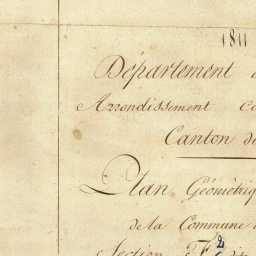 1811
Département
Arrondissement Co
Canton de
Plan Géométriq
de la Commune
Section F 2 dite